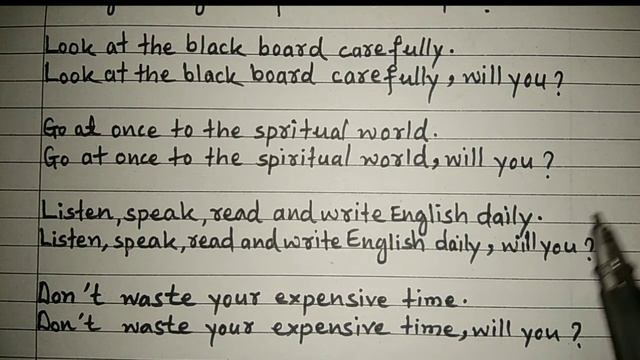 Look at the black board carefully.
Look at the black board carefully, will you?
Go at once to the spritual world.
Go at once to the spiritual world, will you?
Listen, speak, read and write English daily.
Listen, speak, read and write English daily, will you?
Don't waste your expensive time.
Don't waste your expensive time, will you?